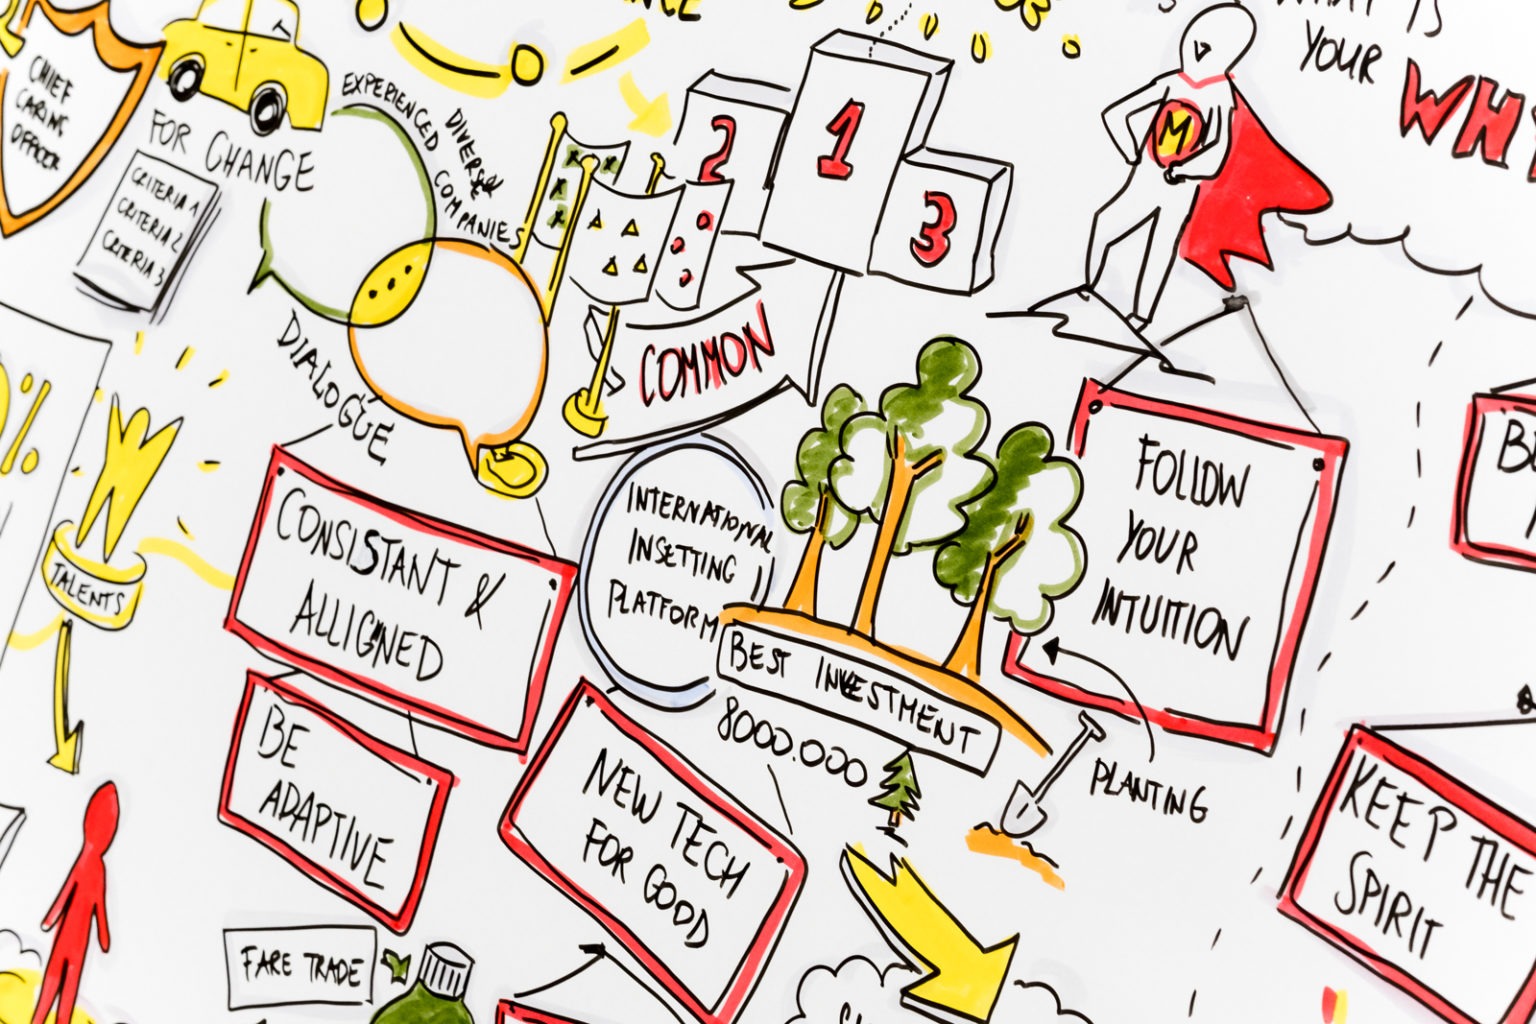 CHIEF
CARING
OFFICER
FOR CHANGE
CRITERIA 1
CRITERIA 2
CRITERIA 3
EXPERIENCED
DIVERSE
COMPANIES
DIALOGUE
2
1
3
COMMON
M
YOUR
%
TALENTS
CONSISTANT &
ALLIGNED
BE
ADAPTIVE
INTERNATIONAL
INSETTING
PLATFORM
BEST INVESTMENT
8000.000
PLANTING
FOLLOW
YOUR
INTUITION
NEW TECH
FOR GOOD
KEEP THE
SPIRIT
FARE TRADE